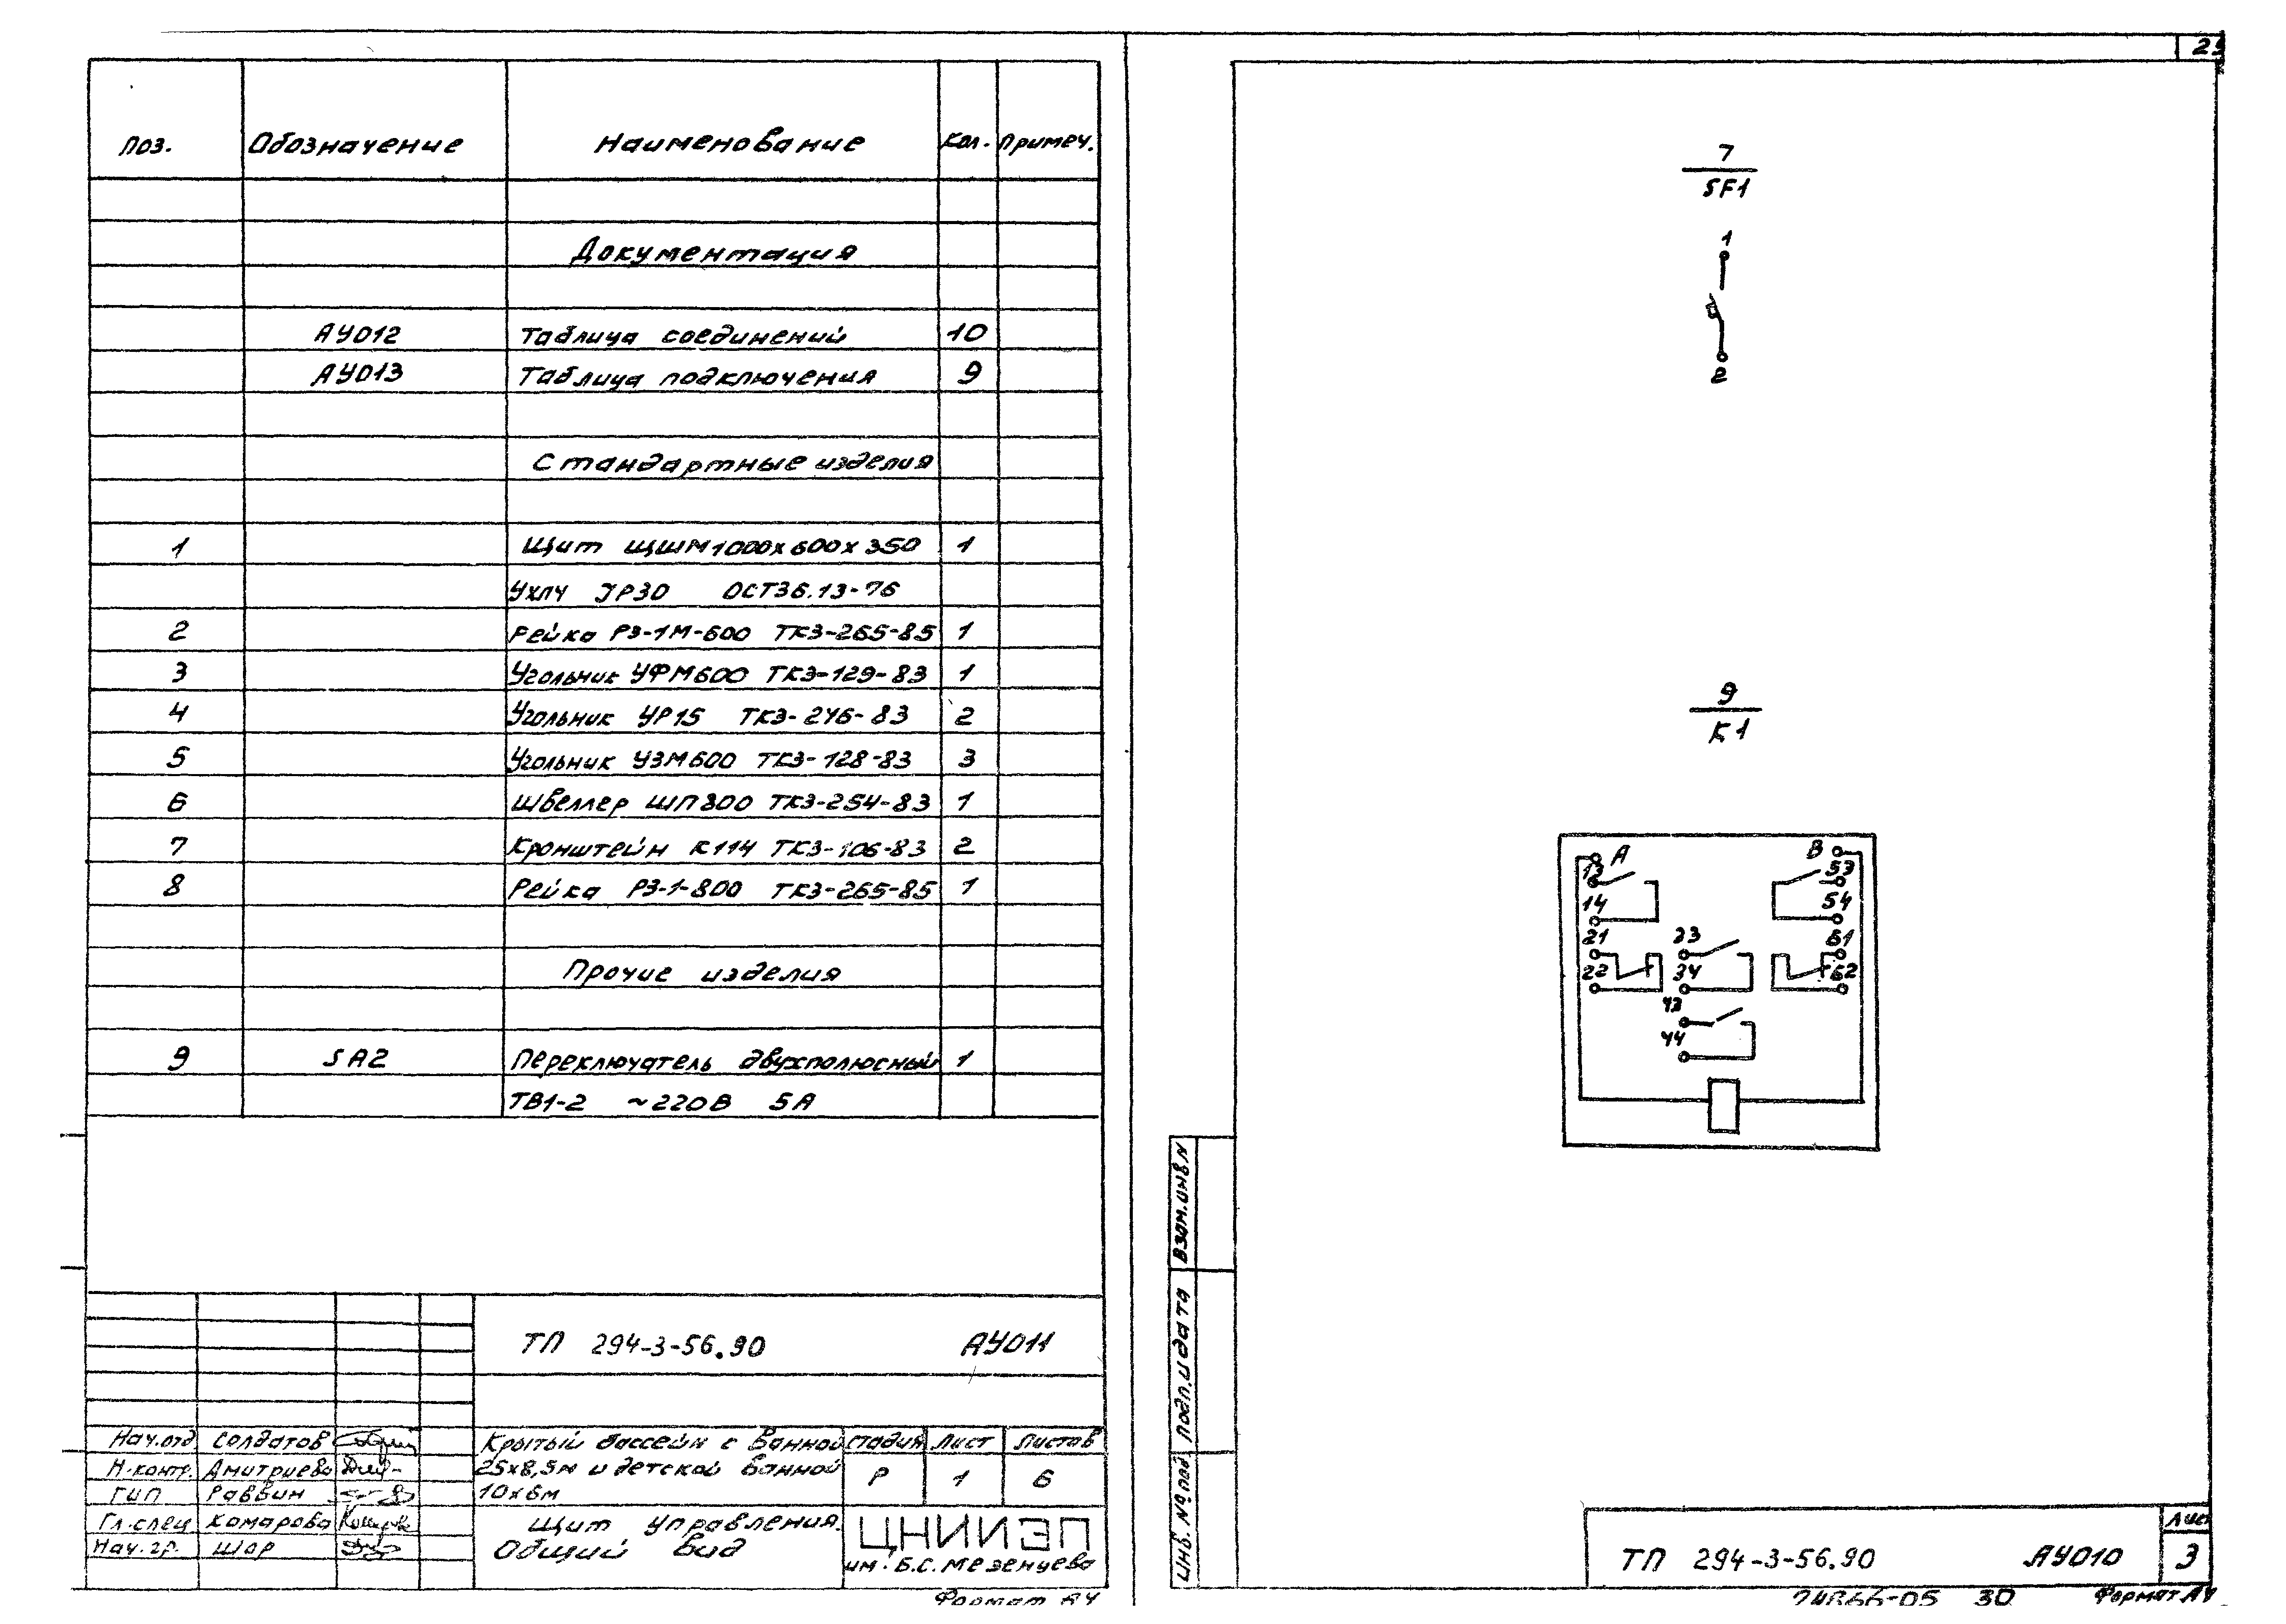 Поз. Обозначение Наименование Кол. Примеч.
Документация
АУ012 Таблица соединений 10
АУ013 Таблица подключения 9
Стандартные изделия
1 Щит ЩШМ1000х600х350 1
УХЛ4 УР30 ОСТ36.13-76
2 Рейка РЗ-1М-600 ТК3-265-85 1
3 Угольник УФМ600 ТК3-129-83 1
4 Угольник УР15 ТК3-246-83 2
5 Угольник УЗМ600 ТК3-128-83 3
6 Швеллер ШП800 ТК3-254-83 1
7 Кронштейн К114 ТК3-106-83 2
8 Рейка РЗ-1-800 ТК3-265-85 1
Прочие изделия
9 SA2 Переключатель двухполюсный 1
ТВ1-2 ~220В 5А
ТП 294-3-56.90 АУ011
Нач.отд Солдатов
Н.контр. Дмитриева
ГИП Раввин
Гл.спец Комарова
Нач.гр. Шор
Крытый бассейн с ванной
25х8,5м и детской ванной
10х6м
Стадия Лист Листов
Р 1 6
Щит управления.
Общий вид
ЦНИИЭП
им. Б.С. Мезенцева
Формат А4
7
SF1
1
2
9
К1
А В
13 53
14 54
21 33 61
22 34 62
43
44
Взам.инв.N
Подп.и дата
Инв. № подл.
ТП 294-3-56.90 АУ010
Лист
3
24866-05 30 Формат А4